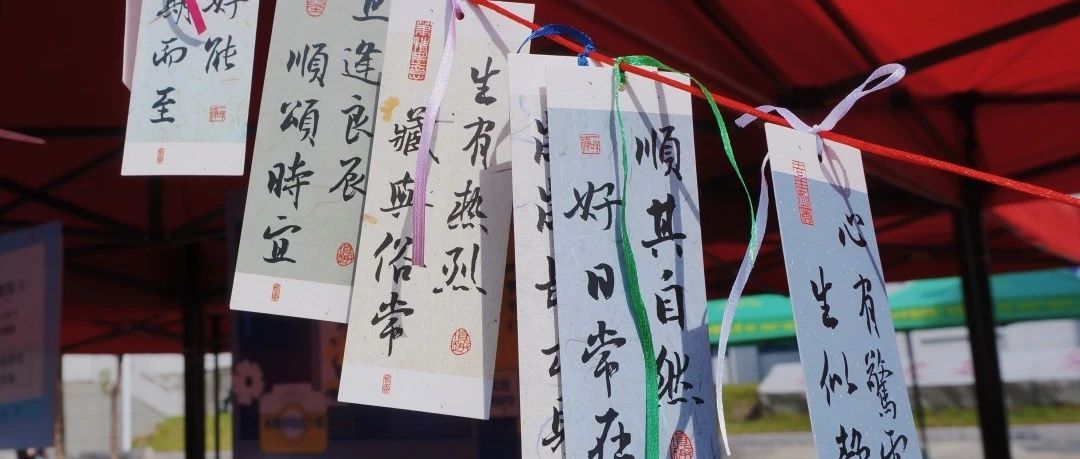 好能
期而至
逢良辰
順頌時宜
生有热烈
藏與俗常
順其自然
好日常在
心有驚雷
生似静